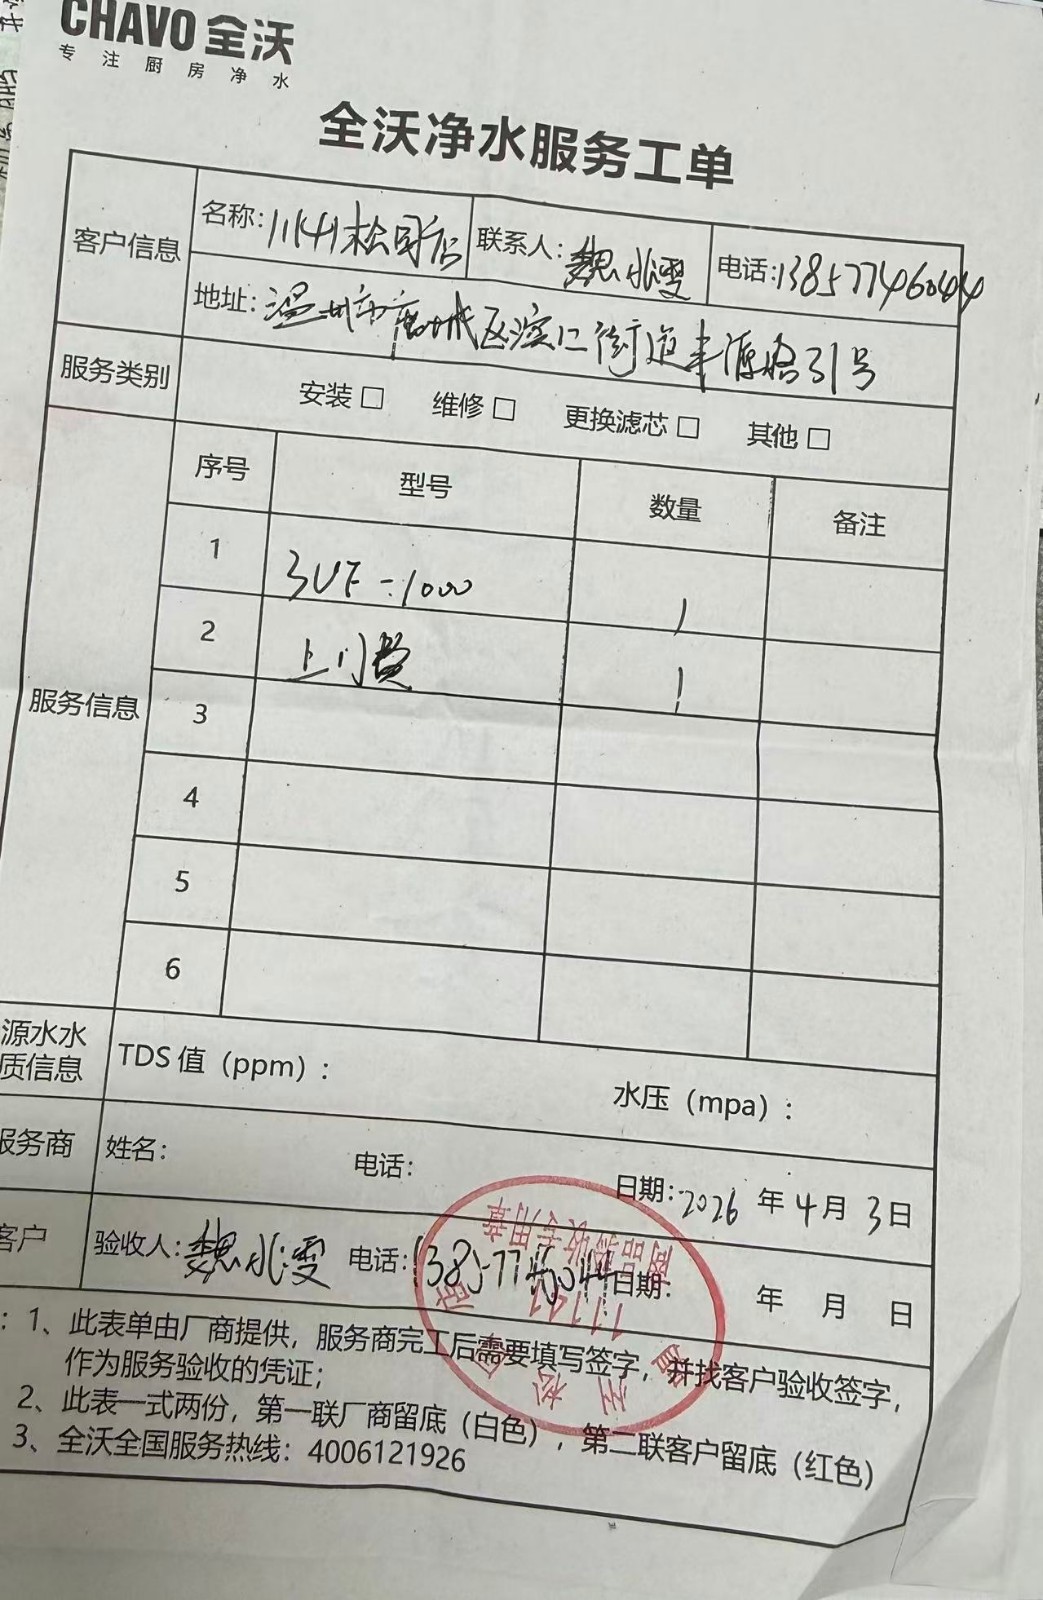 CHAVO 全沃
专注厨房净水
全沃净水服务工单
客户信息
名称: 松司店
联系人: 魏
电话:13857746044
地址: 温州市 城区滨江街道丰源路31号
服务类别
安装□ 维修□ 更换滤芯□ 其他□
服务信息
序号 型号 数量 备注
1 3UF-1000 1
2 上门费 1
3
4
5
6
源水水
质信息
TDS 值（ppm）: 水压（mpa）:
服务商
姓名: 电话: 日期: 2026 年 4 月 3 日
客户
验收人: 魏 电话: 13857746044 日期: 年 月 日
商品验收专用章
11141
: 1、此表单由厂商提供，服务商完工后需要填写签字，并找客户验收签字，
作为服务验收的凭证；
2、此表一式两份，第一联厂商留底（白色），第二联客户留底（红色）
3、全沃全国服务热线：4006121926